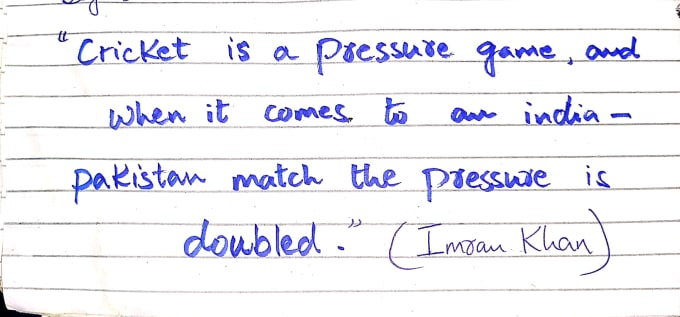 "Cricket is a pressure game, and
when it comes to an india-
pakistan match the pressure is
doubled." (Imran Khan)